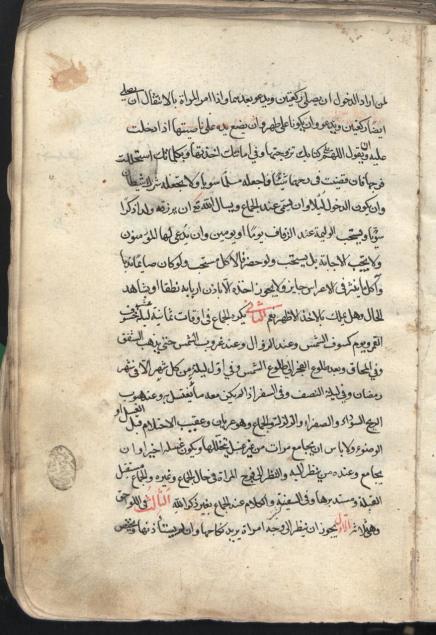 لمن اراد الدخول ان يصلى ركعتين ويدعو بعدهما واذا امر المراة بالانتقال ان تصلى
ايضا ركعتين وتدعو وان يكونا على طهر وان يضع يده على ناصيتها اذا دخلت
عليه ويقول اللهم على كتابك تزوجتها وفى امانتك اخذتها وبكلماتك استحللت
فرجها فان قضيت فى رحمها شيئا فاجعله مسلما سويا ولا تجعله شرك الشيطان
وان يكون الدخول ليلا وان يسمى عند الجماع ويسال الله تع ان يرزقه ولدا ذكرا
سويا ويستحب الوليمة عند الزفاف يوما او يومين وان يدعى لها المؤمنون
ولا يجب الاجابة بل يستحب ولو حضر فالاكل مستحب ولو كان صايما ندبا
واكل ما ينثر فى الاعراس جايز ولا يجوز اخذه الا باذن اربابه نطقا او بشاهد
الحال وهل يملك بالاخذ الاظهر نعم الثانى يكره الجماع فى اوقات ثمانية ليلة خسوف
القمر ويوم كسوف الشمس وعند الزوال وعند غروب الشمس حتى يذهب الشفق
وفى المحاق وبعد طلوع الفجر الى طلوع الشمس وفى اول ليلة من كل شهر الا فى شهر
رمضان وفى ليلة النصف وفى السفر اذا لم يكن معه ما يغتسل به وعند هبوب
الريح السوداء والصفراء والزلزلة والجماع وهو عريان وعقيب الاحتلام قبل الغسل او
الوضوء ولا باس ان يجامع مرات من غير غسل يتخللها ويكون غسله اخيرا وان
يجامع وعنده من ينظر اليه والنظر الى فرج المراة فى حال الجماع وغيره والجماع مستقبل
القبلة ومستدبرها وفى السفينة والكلام عند الجماع بغير ذكر الله الثالث فى اللواحق
وهى ثلاثة الاول يجوز ان ينظر الى وجه امراة يريد نكاحها وان لم يستأذنها ويختص